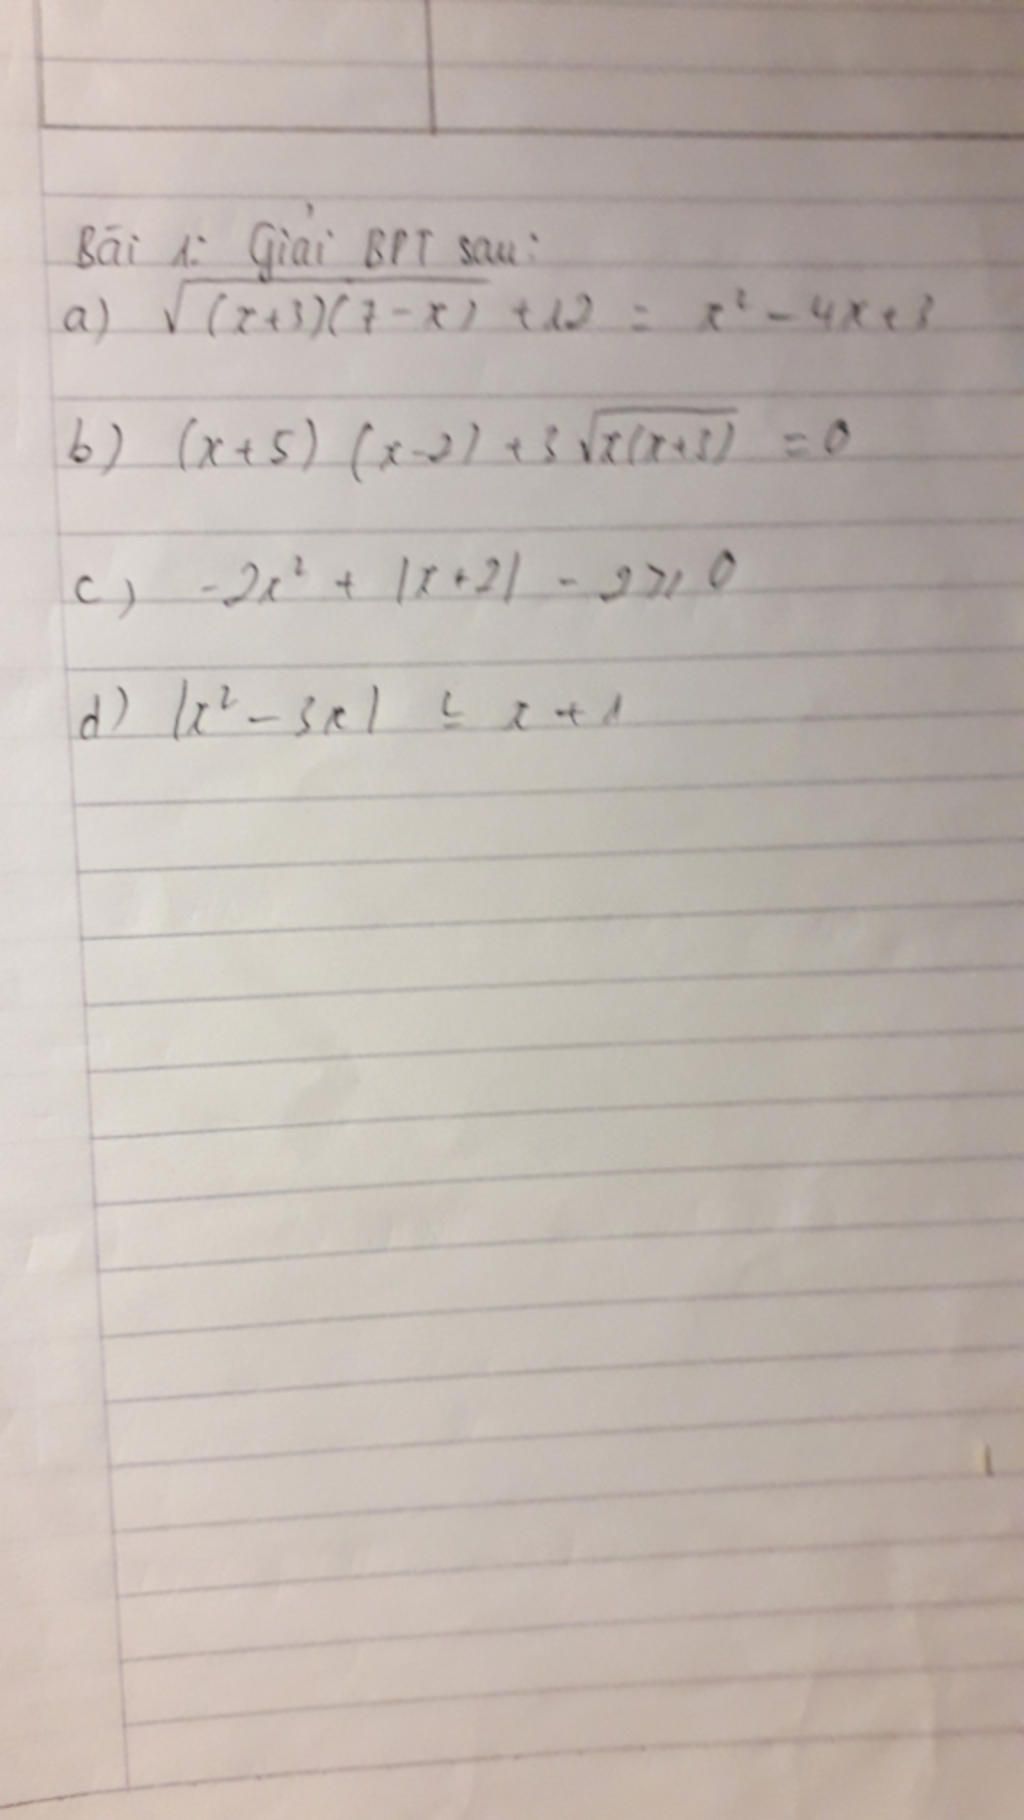 Bài 1: Giải BPT sau:
a) √(x+3)(7-x) + 12 = x² - 4x + 3
b) (x+5) (x-2) + 3 √x(x+3) = 0
c) -2x² + |x+2| - 2 ≥ 0
d) |x² - 3x| ≤ x + 1